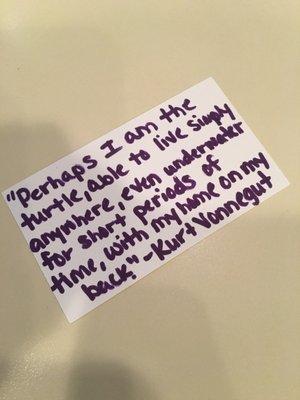 "Perhaps I am the
turtle, able to live simply
anywhere, even underwater
for short periods of
time, with my home on my
back." - Kurt Vonnegut